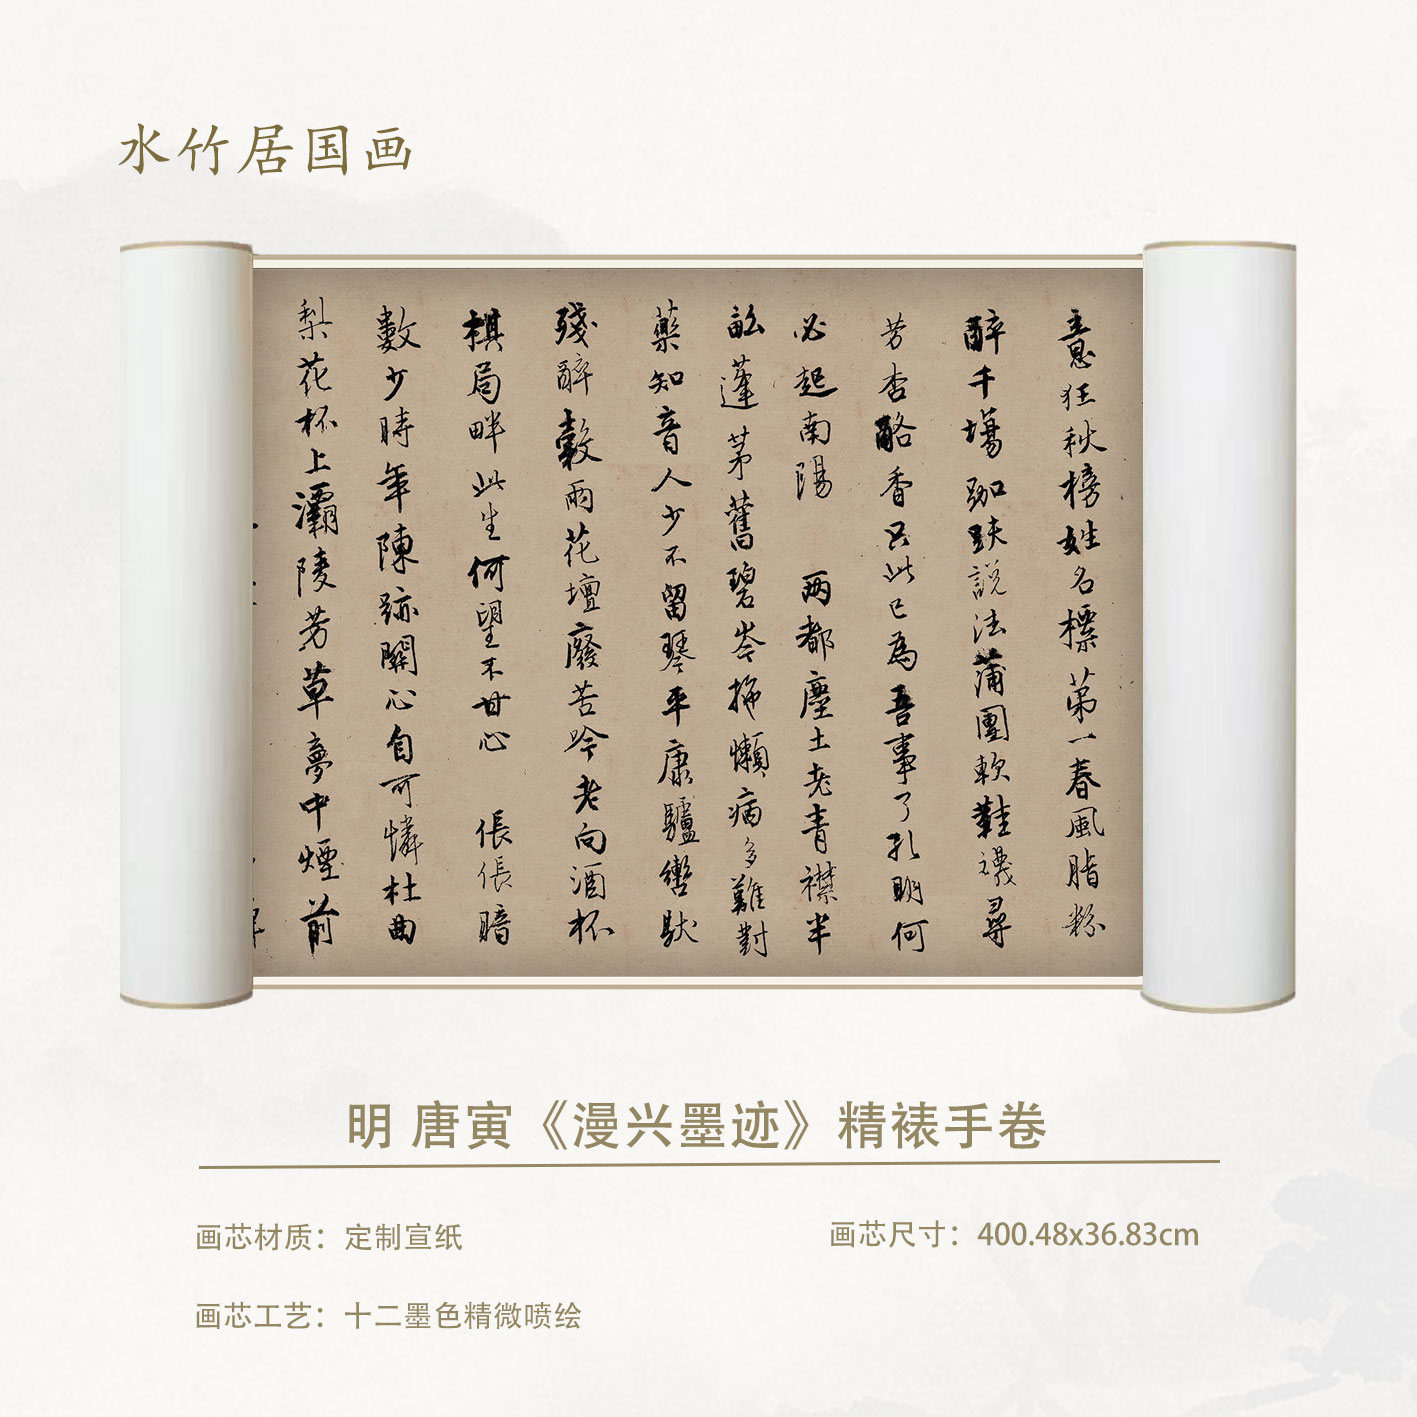 水竹居国画
意狂秋榜姓名標第一春風脂粉
醉千場跏趺說法蒲團軟鞋襪尋
芳杏酪香只此已為吾事了孔明何
必起南陽 两都塵土老青襟半
畝蓬茅舊碧岑拖懶病多難對
藥知音人少不留琴平康驢轡馱
殘醉穀雨花壇廢苦吟老向酒杯
棋局畔此生何望不甘心 倀倀暗
數少時年陳跡關心自可憐杜曲
梨花杯上灞陵芳草夢中煙前
明 唐寅《漫兴墨迹》精裱手卷
画芯材质：定制宣纸
画芯尺寸：400.48x36.83cm
画芯工艺：十二墨色精微喷绘